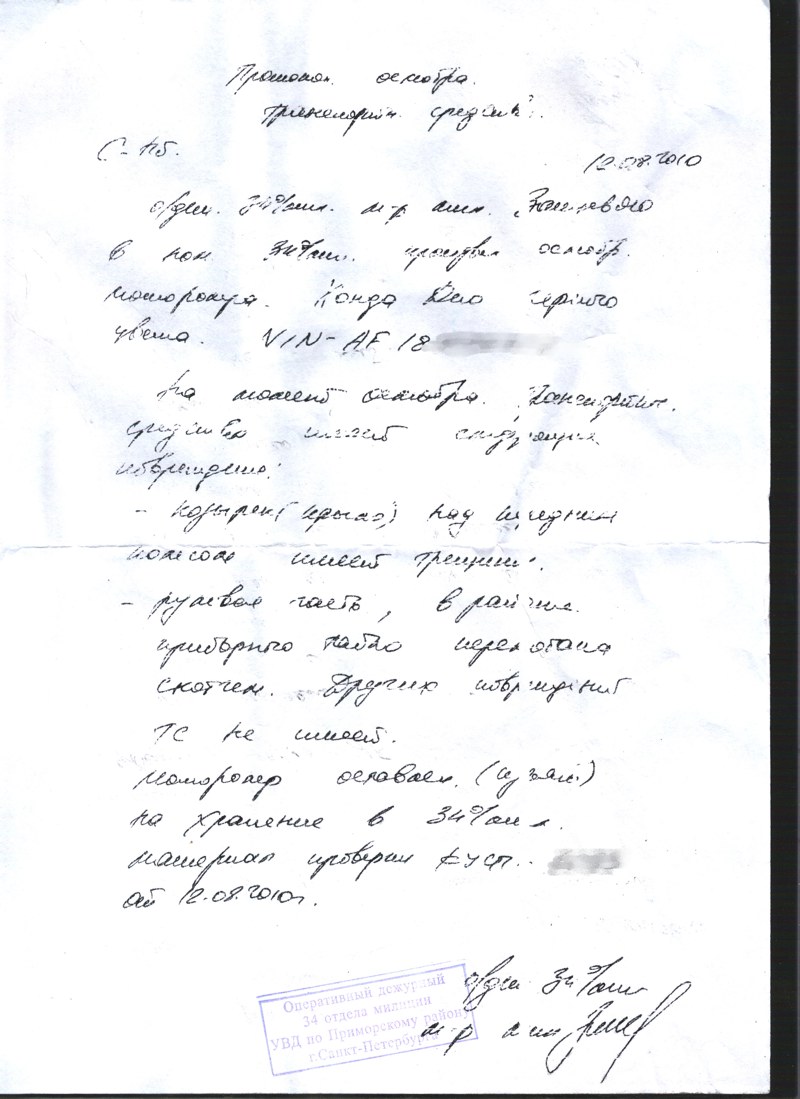 Протокол осмотра
транспортн. средств.
С-Пб. 12.08.2010
о/деж. 34 о/мил. м-р мил.
в пом. 34 о/мил. произвел осмотр
мотороллера Хонда Дио черного
цвета. VIN-AF 18
На момент осмотра транспортн.
средство имеет следующие
повреждения:
- козырек (крыло) над передним
колесом имеет трещины.
- рулевая часть, в районе
приборного табло перемотана
скотчем. Других повреждений
ТС не имеет.
мотороллер оставлен (изъят)
на хранение в 34 о/мил.
материал проверки КУСП
от 12.08.2010г.
о/деж 34 о/мил
м-р мил
Оперативный дежурный
34 отдела милиции
УВД по Приморскому району
г.Санкт-Петербурга